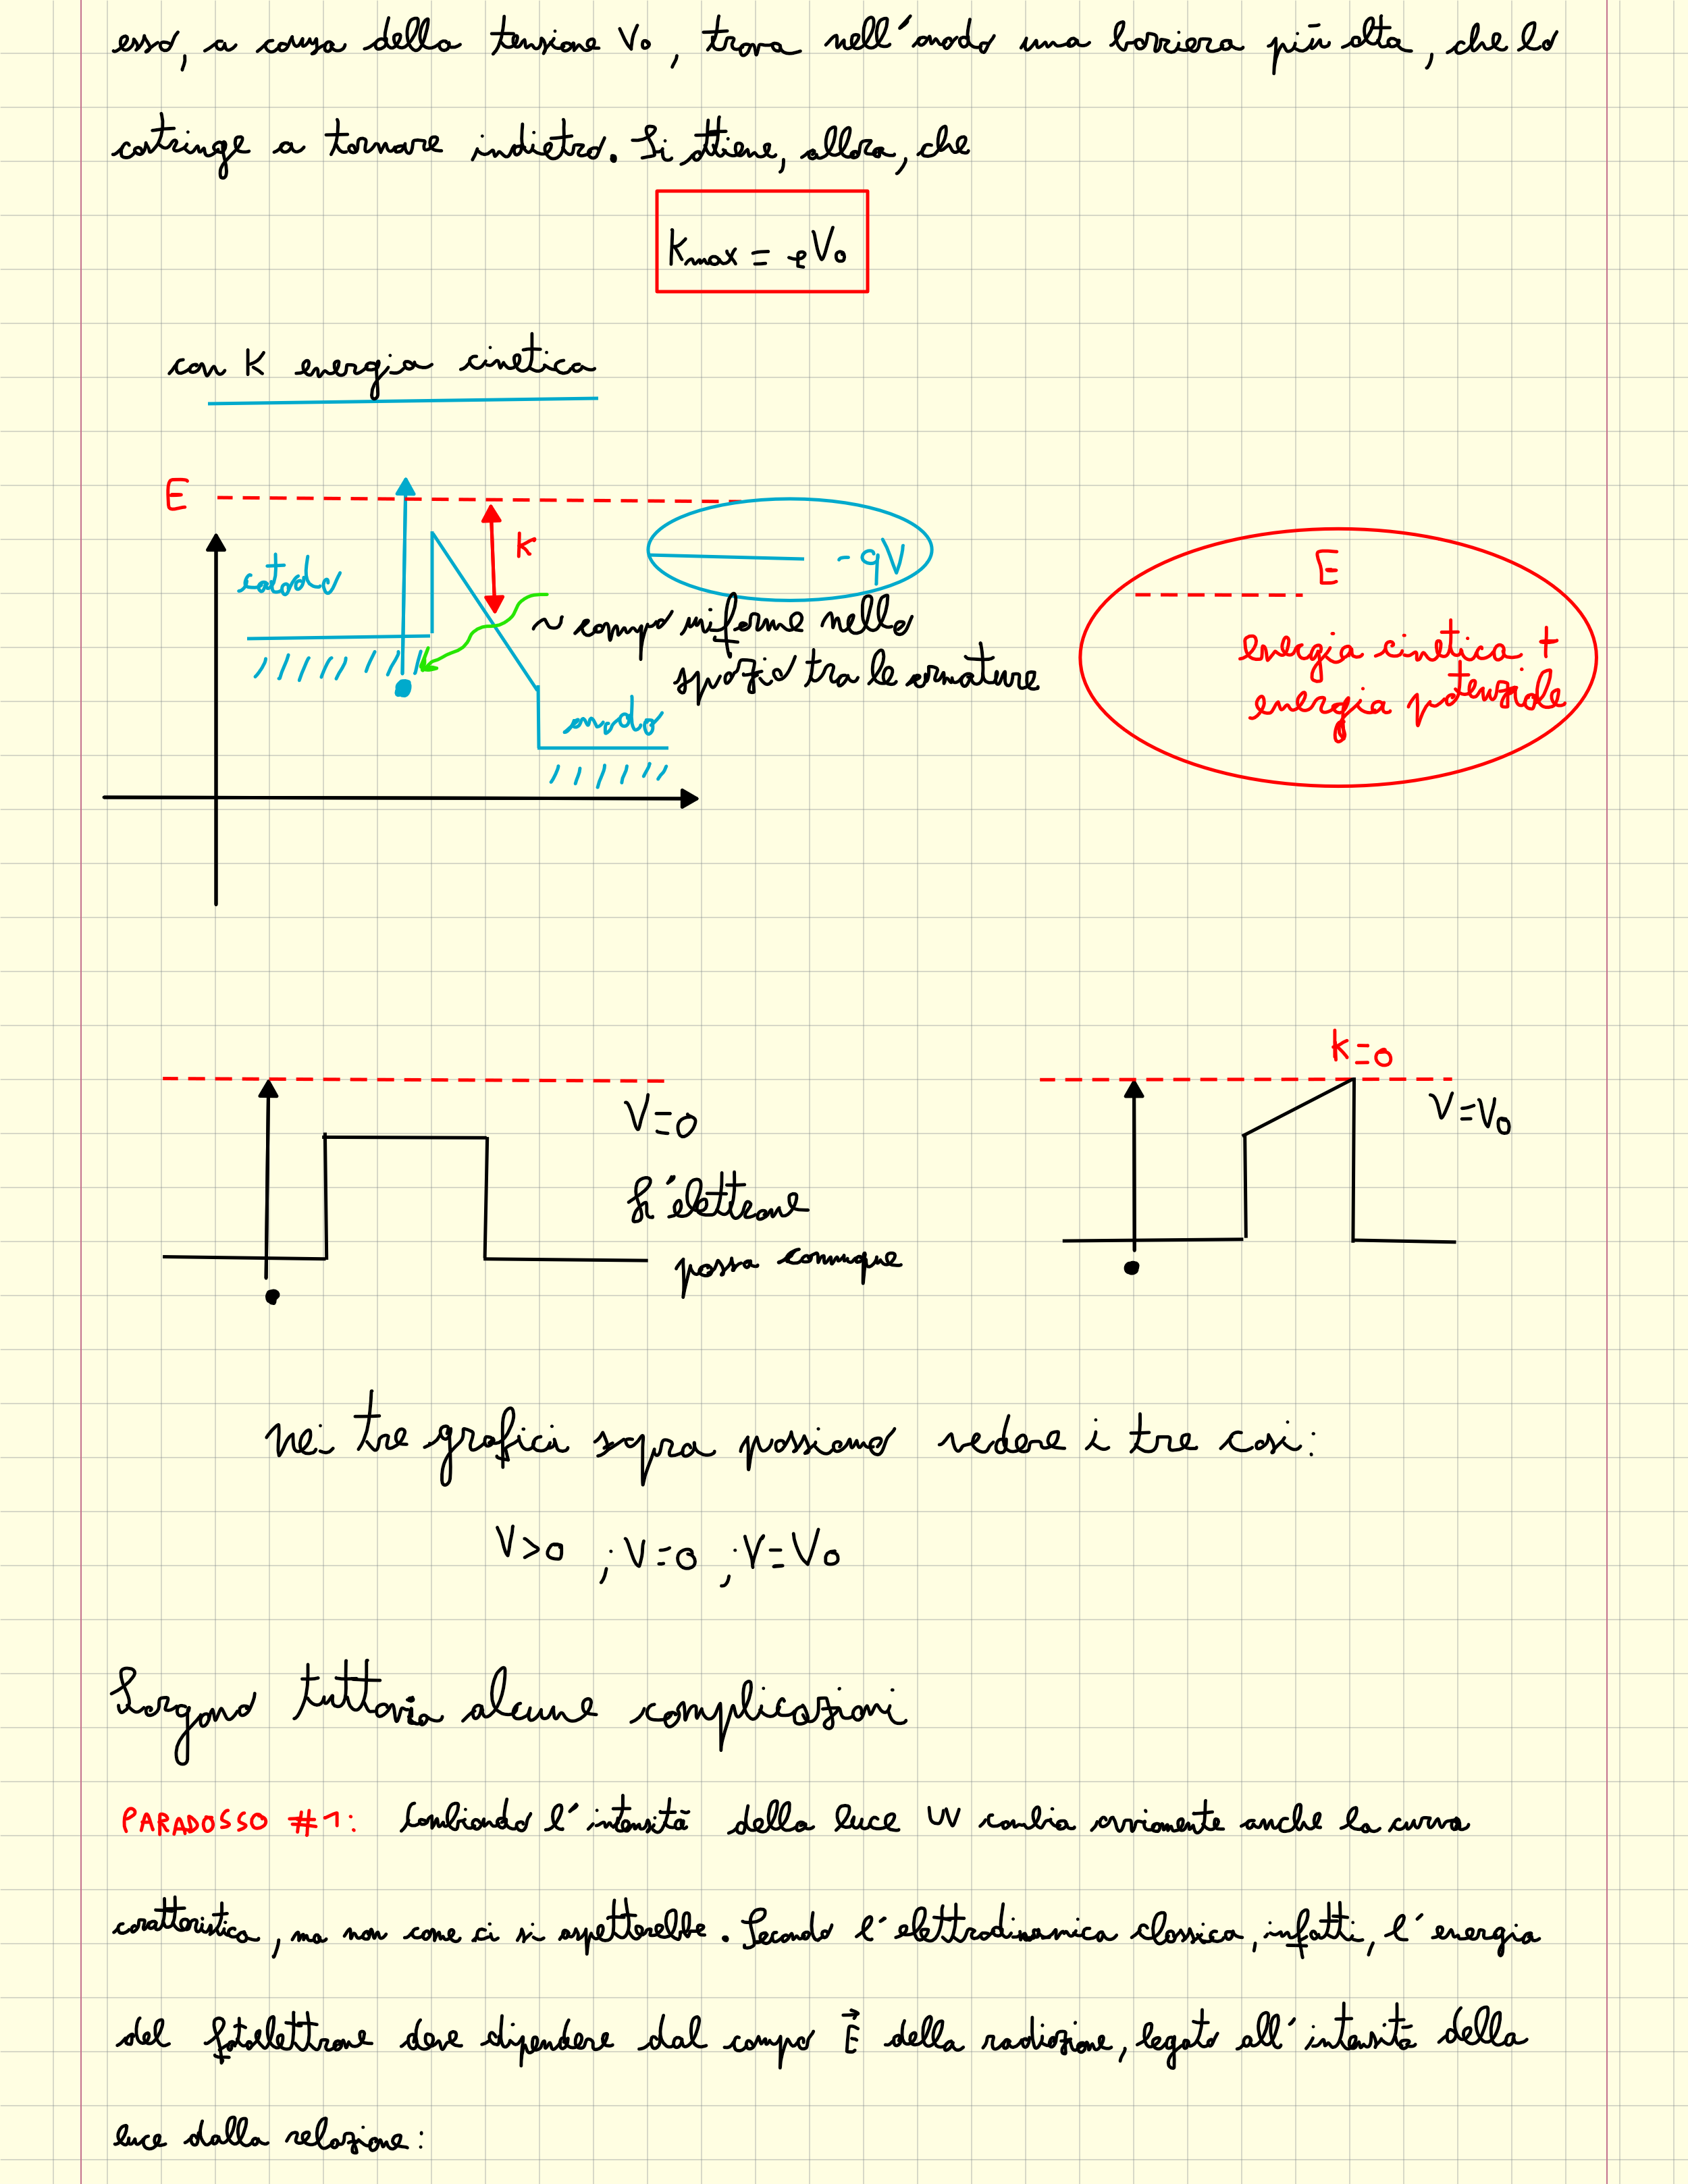 esso, a causa della tensione V₀, trova nell'anodo una barriera più alta, che lo
costringe a tornare indietro. Si ottiene, allora, che
Kmax = eV₀
con K energia cinetica
E
K
catodo
- qV
~ campo uniforme nello
spazio tra le armature
anodo
E
energia cinetica +
energia potenziale
K=0
V=0
V=V₀
L'elettrone
passa comunque
nei tre grafici sopra possiamo vedere i tre casi:
V>0 ; V=0 ; V=V₀
Sorgono tuttavia alcune complicazioni
PARADOSSO #1: Cambiando l'intensità della luce UV cambia ovviamente anche la curva
caratteristica, ma non come ci si aspetterebbe. Secondo l'elettrodinamica classica, infatti, l'energia
del fotoelettrone deve dipendere dal campo E⃗ della radiazione, legato all'intensità della
luce dalla relazione: